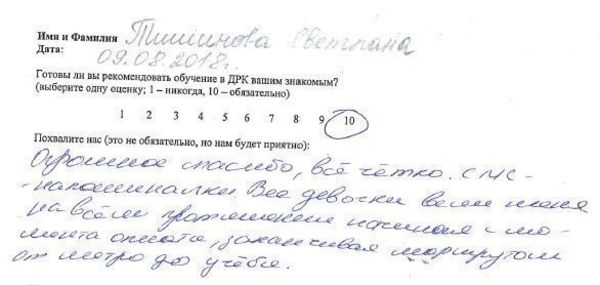 Имя и Фамилия Тишинова Светлана
Дата: 09.08.2018г.
Готовы ли вы рекомендовать обучение в ДРК вашим знакомым?
(выберите одну оценку; 1 – никогда, 10 – обязательно)
1 2 3 4 5 6 7 8 9 10
Похвалите нас (это не обязательно, но нам будет приятно):
Огромное спасибо, всё чётко. СМС-
-напоминалки Все девочки вели меня
на всём протяжении начиная с мо-
мента оплаты, заканчивая маршрутом
от метро до учёбы.